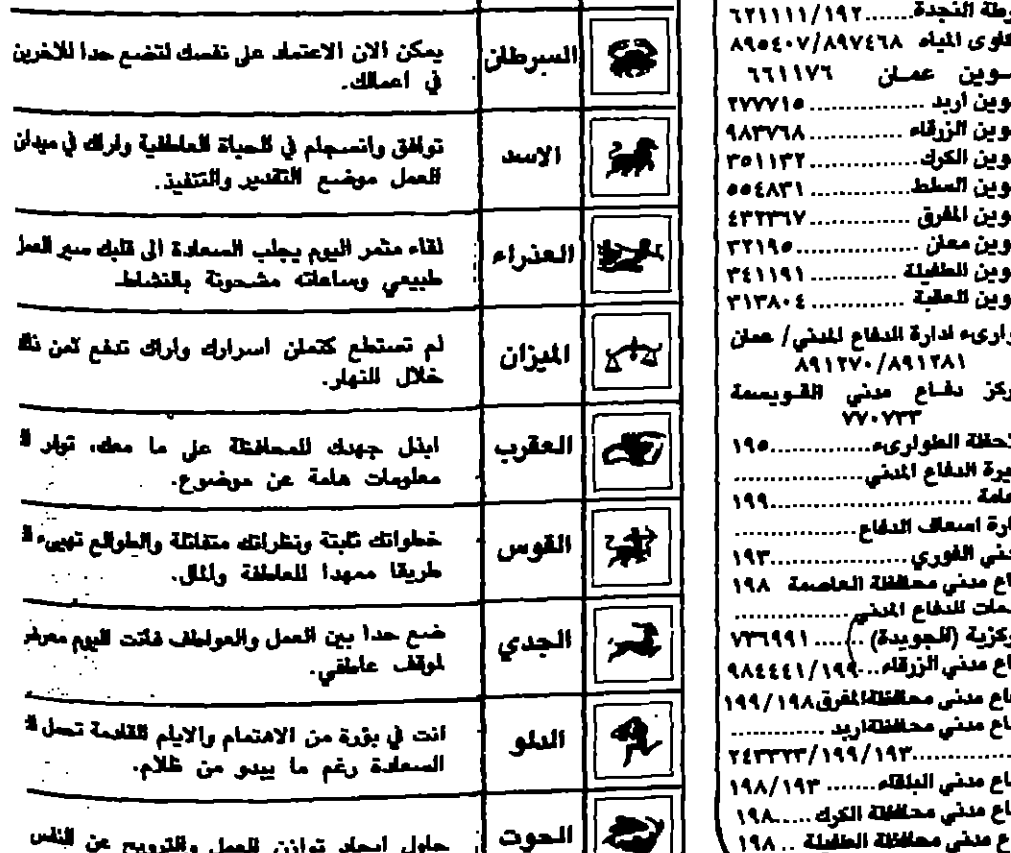 السرطان
يمكن الان الاعتماد على نفسك لتضع حدا للاخرين
في اعمالك.
الاسد
توافق وانسجام في الحياة العاطفية واراك في ميدان
العمل موضع التقدير والتنفيذ.
العذراء
لقاء مثمر اليوم يجلب السعادة الى قلبك سير العمل
طبيعي وساعاته مشحونة بالنشاط.
الميزان
لم تستطع كتمان اسرارك واراك تدفع ثمن
خلال النهار.
العقرب
ابذل جهدك للمحافظة على ما معك، توفر
معلومات هامة عن موضوع.
القوس
خطواتك ثابتة ونظراتك متفائلة والطوالع تهيىء
طريقا ممهدا للعاطفة والمال.
الجدي
ضع حدا بين العمل والعواطف فأنت اليوم
لموقف عاطفي.
الدلو
انت في بؤرة من الاهتمام والايام القادمة تحمل
السعادة رغم ما يبدو من ظلام.
الحوت
حاول ايجاد توازن للعمل والترويح عن النفس
النجدة.......٦٢١١١١/١٩٢
المياه ٨٩٥٤٠٧/٨٩٧٤٦٨
عمان ٦٦١١٧٦
اربد ............... ٢٧٧٧١٥
الزرقاء ............ ٩٨٣٧٦٨
الكرك............... ٣٥١١٣٢
السلط............... ٥٥٤٨٣١
المفرق ............. ٤٣٢٣٦٧
معان ............... ٣٢١٩٥
الطفيلة ............ ٣٤١١٩١
العقبة ............. ٣١٣٨٠٤
لادارة الدفاع المدني/ عمان
٨٩١٢٧٠/٨٩١٢٨١
دفاع مدني القويسمة
٧٧٠٧٣٣
الطوارىء..............١٩٥
الدفاع المدني................
....................١٩٩
اسعاف الدفاع................
الفوري ...................١٩٣
مدني محافظة العاصمة ١٩٨
للدفاع المدني .............
(الجويدة) ....... ٧٣٦٩٩١
مدني الزرقاء...٩٨٤٤٤١/١٩٩
مدني محافظة المفرق١٩٩/١٩٨
مدني محافظة اربد ............
...............٢٤٣٣٧٣/١٩٩/١٩٣
مدني البلقاء....... ١٩٨/١٩٣
مدني محافظة الكرك .....١٩٨
مدني محافظة الطفيلة .. ١٩٨